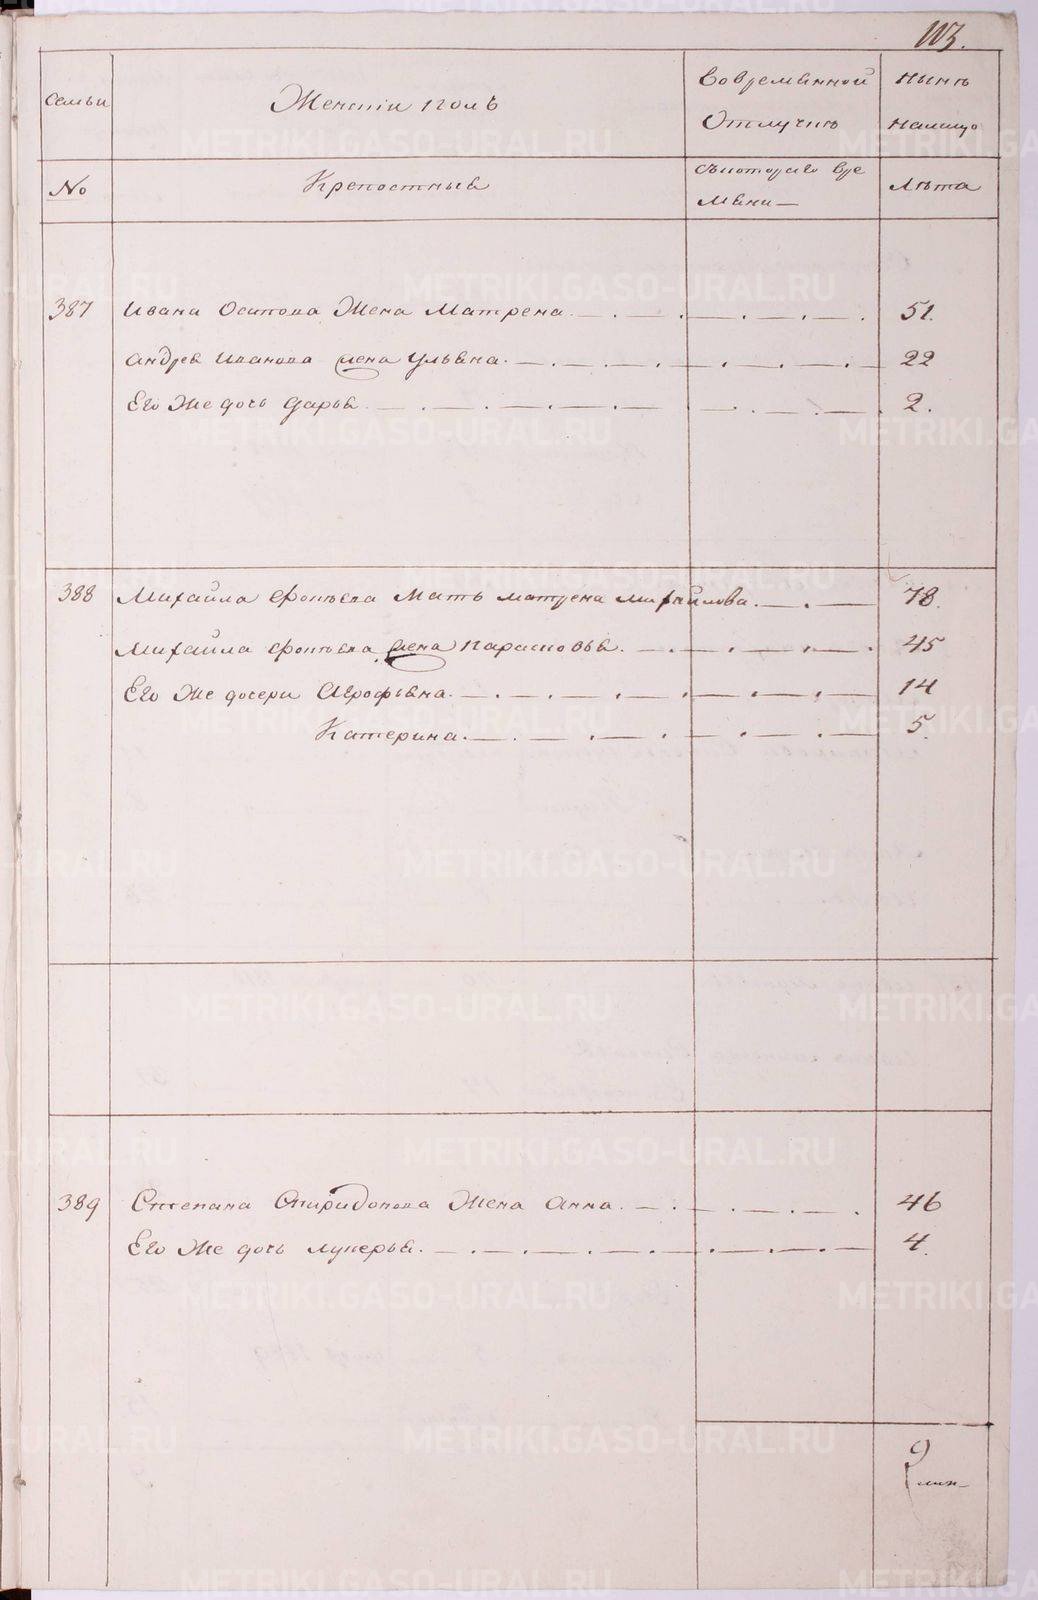 113.
семьи
Женскiй полъ
Во временной
Отлучкѣ
Нынѣ
Налицо
No
Крепостныя
съ котораго вре
мени —
Лѣта
387 Ивана Осипова Жена Матрена. 51.
Андрея Иванова жена Ульяна. 22
Его Же дочь Дарья 2.
388 Михайла Фотѣева Мать матрена михайлова. 78.
Михайла Фотѣева жена Парасковья. 45
Его Же дочери Агрофѣна. 14
Катерина. 5.
389 Степана Спиридонова Жена Анна. 46
Его Же дочь лукерья. 4.
9
METRIKI.GASO-URAL.RU